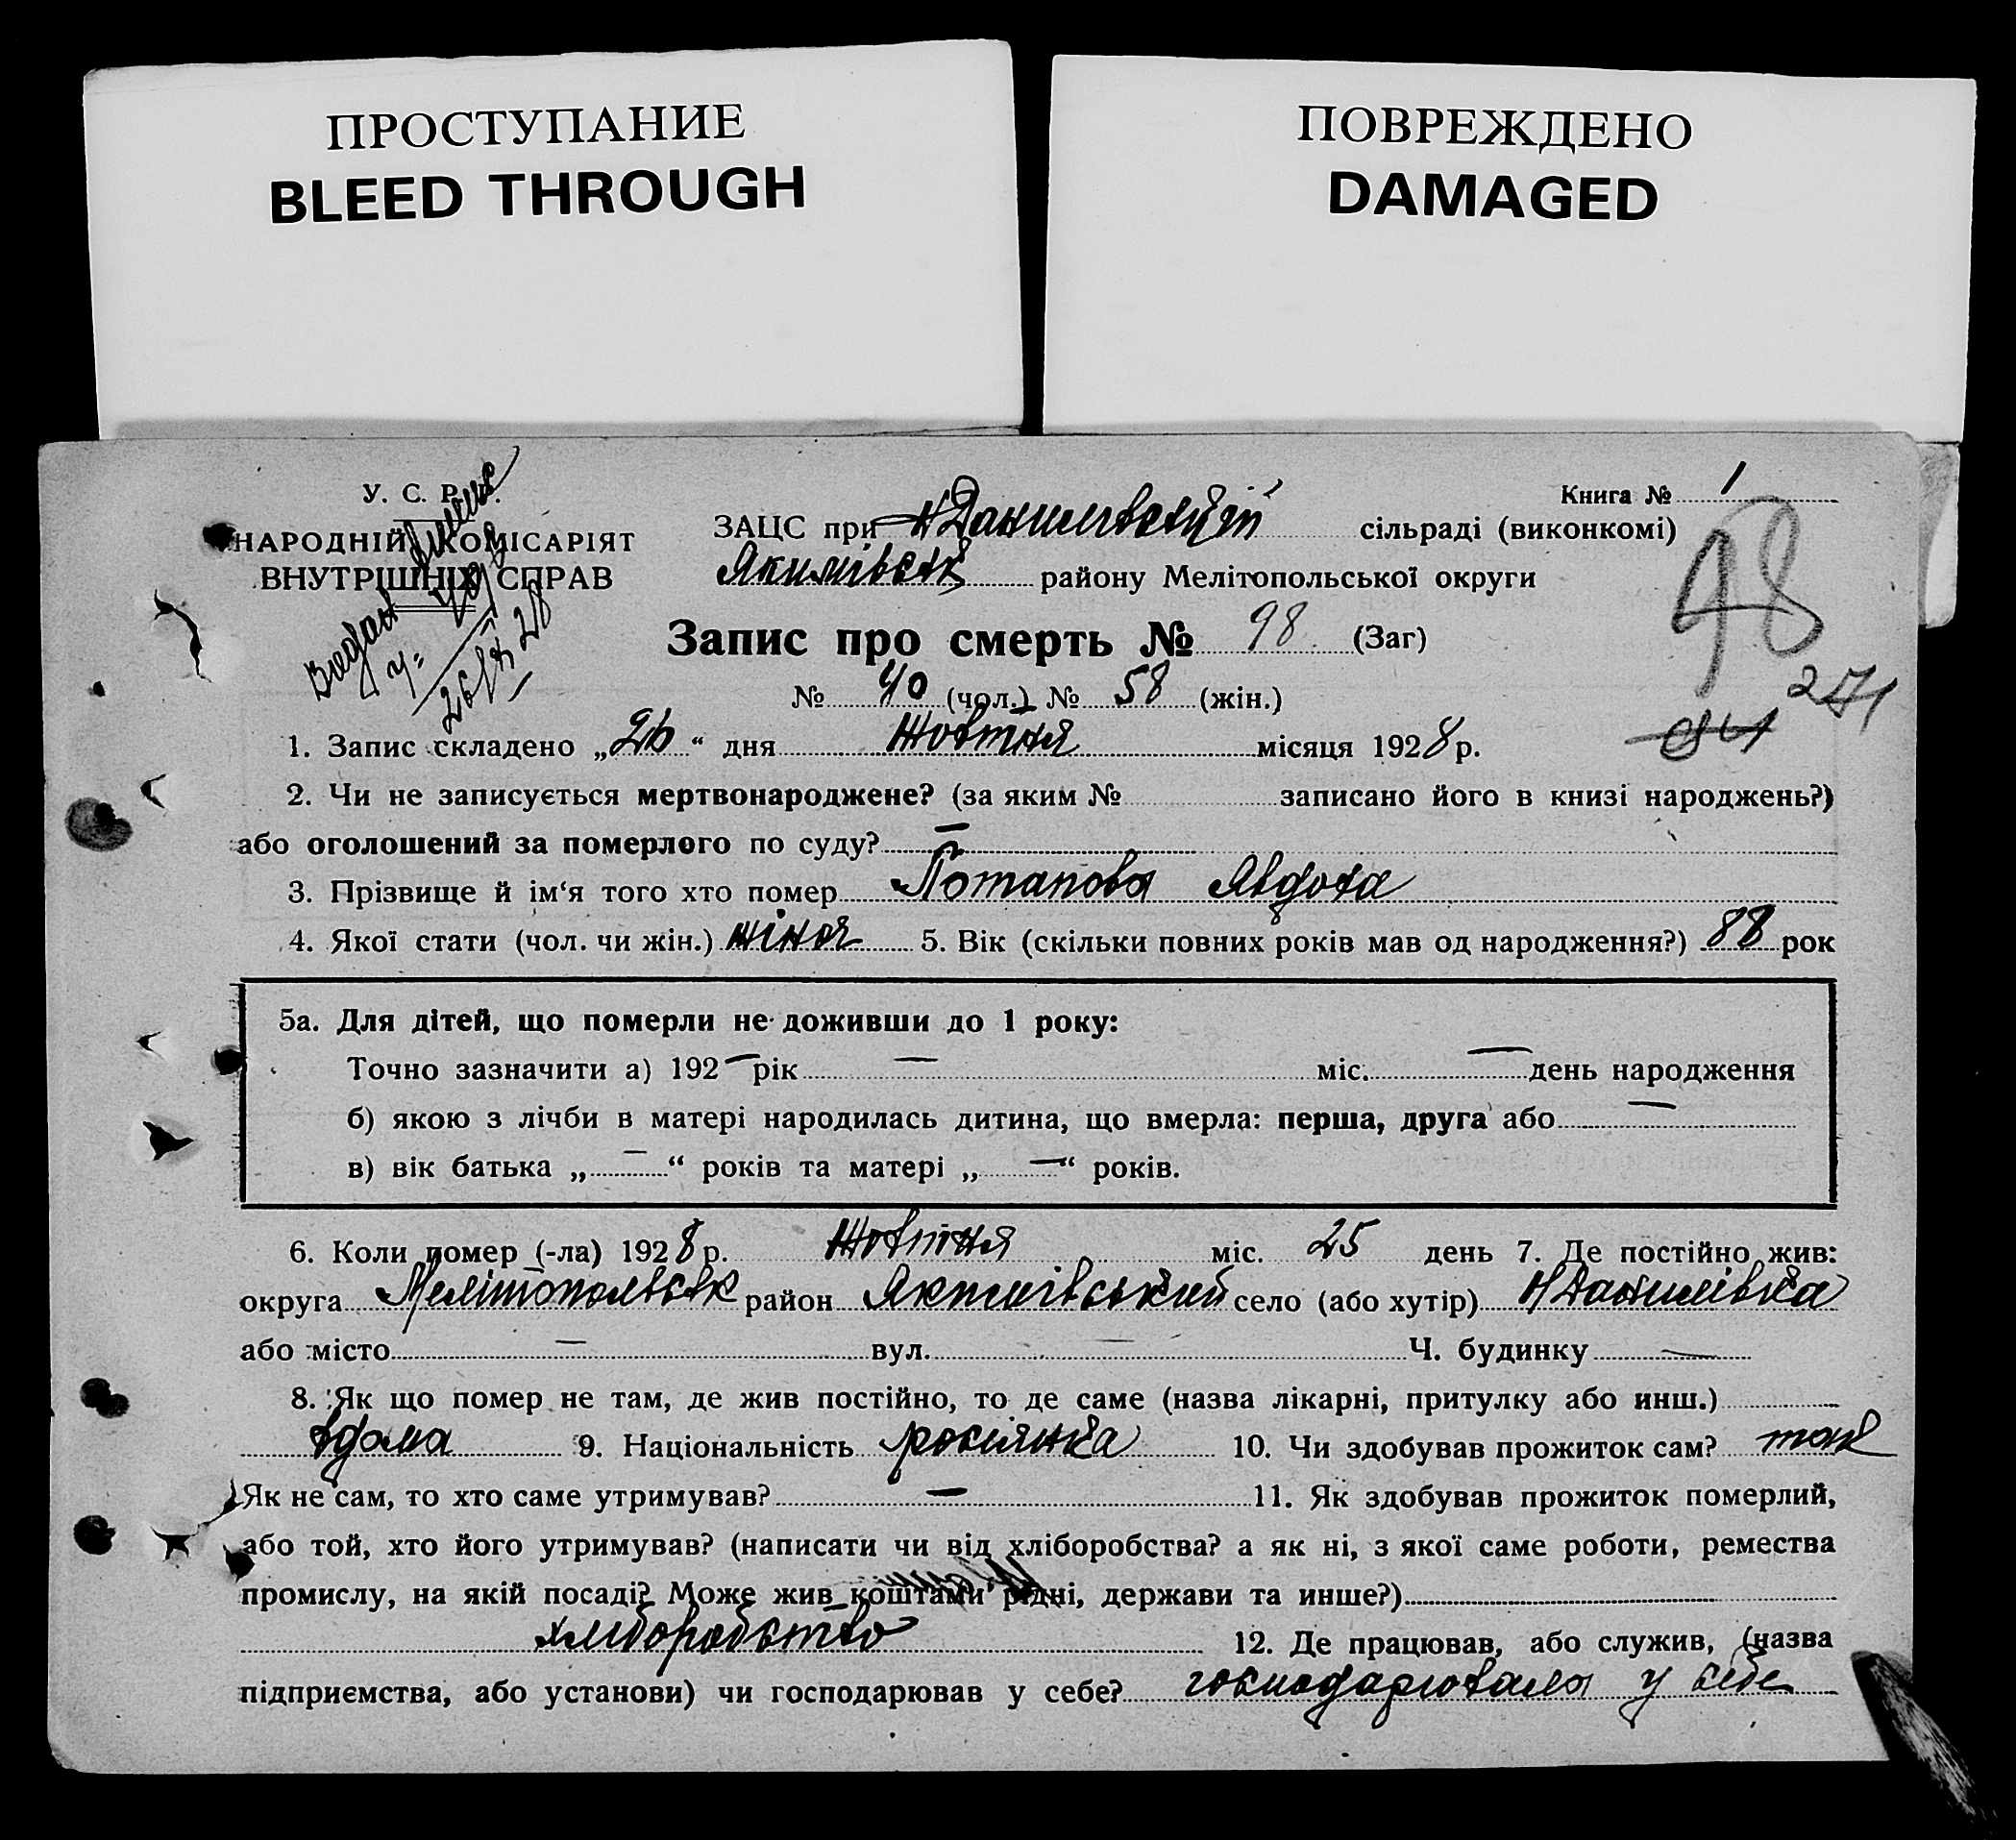 ПРОСТУПАНИЕ
BLEED THROUGH
ПОВРЕЖДЕНО
DAMAGED
У. С. Р. Р.
НАРОДНІЙ КОМІСАРІЯТ
ВНУТРІШНІХ СПРАВ
26/X 28
Книга № 1
ЗАЦС при Н Данилівській сільраді (виконкомі)
Якимівськ району Мелітопольської округи
98
Запис про смерть № 98 (Заг)
271
№ 40 (чол.) № 58 (жін.)
1. Запис складено „26“ дня Жовтня місяця 1928 р.
2. Чи не записується мертвонароджене? (за яким № записано його в книзі народжень?)
або оголошений за померлого по суду? —
3. Прізвище й ім‘я того хто помер Потапова Явдоха
4. Якої стати (чол. чи жін.) жіноч 5. Вік (скільки повних років мав од народження?) 88 рок
5а. Для дітей, що померли не доживши до 1 року:
Точно зазначити а) 192— рік — міс. — день народження
б) якою з лічби в матері народилась дитина, що вмерла: перша, друга або —
в) вік батька „—“ років та матері „—“ років.
6. Коли помер (-ла) 1928 р. Жовтня міс. 25 день 7. Де постійно жив:
округа Мелітопольськ район Якимівський село (або хутір) Н Данилівка
або місто — вул. — Ч. будинку —
8. Як що помер не там, де жив постійно, то де саме (назва лікарні, притулку або инш.)
вдома 9. Національність росіянка 10. Чи здобував прожиток сам? так
Як не сам, то хто саме утримував? — 11. Як здобував прожиток померлий,
або той, хто його утримував? (написати чи від хліборобства? а як ні, з якої саме роботи, ремества
промислу, на якій посаді? Може жив коштами рідні, держави та инше?)
хліборобство 12. Де працював, або служив, (назва
підприємства, або установи) чи господарював у себе? господарювала у себе